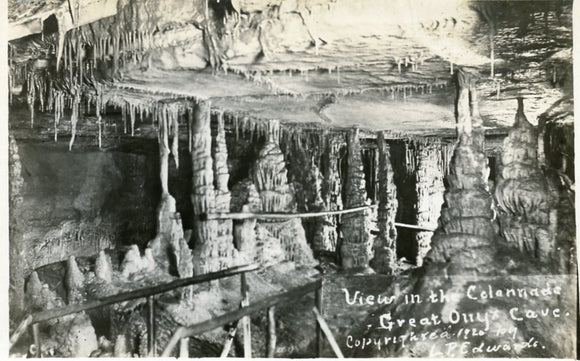 View in the Colonnade
Great Onyx Cave.
Copyrighted 1920 by
L.P. Edwards.